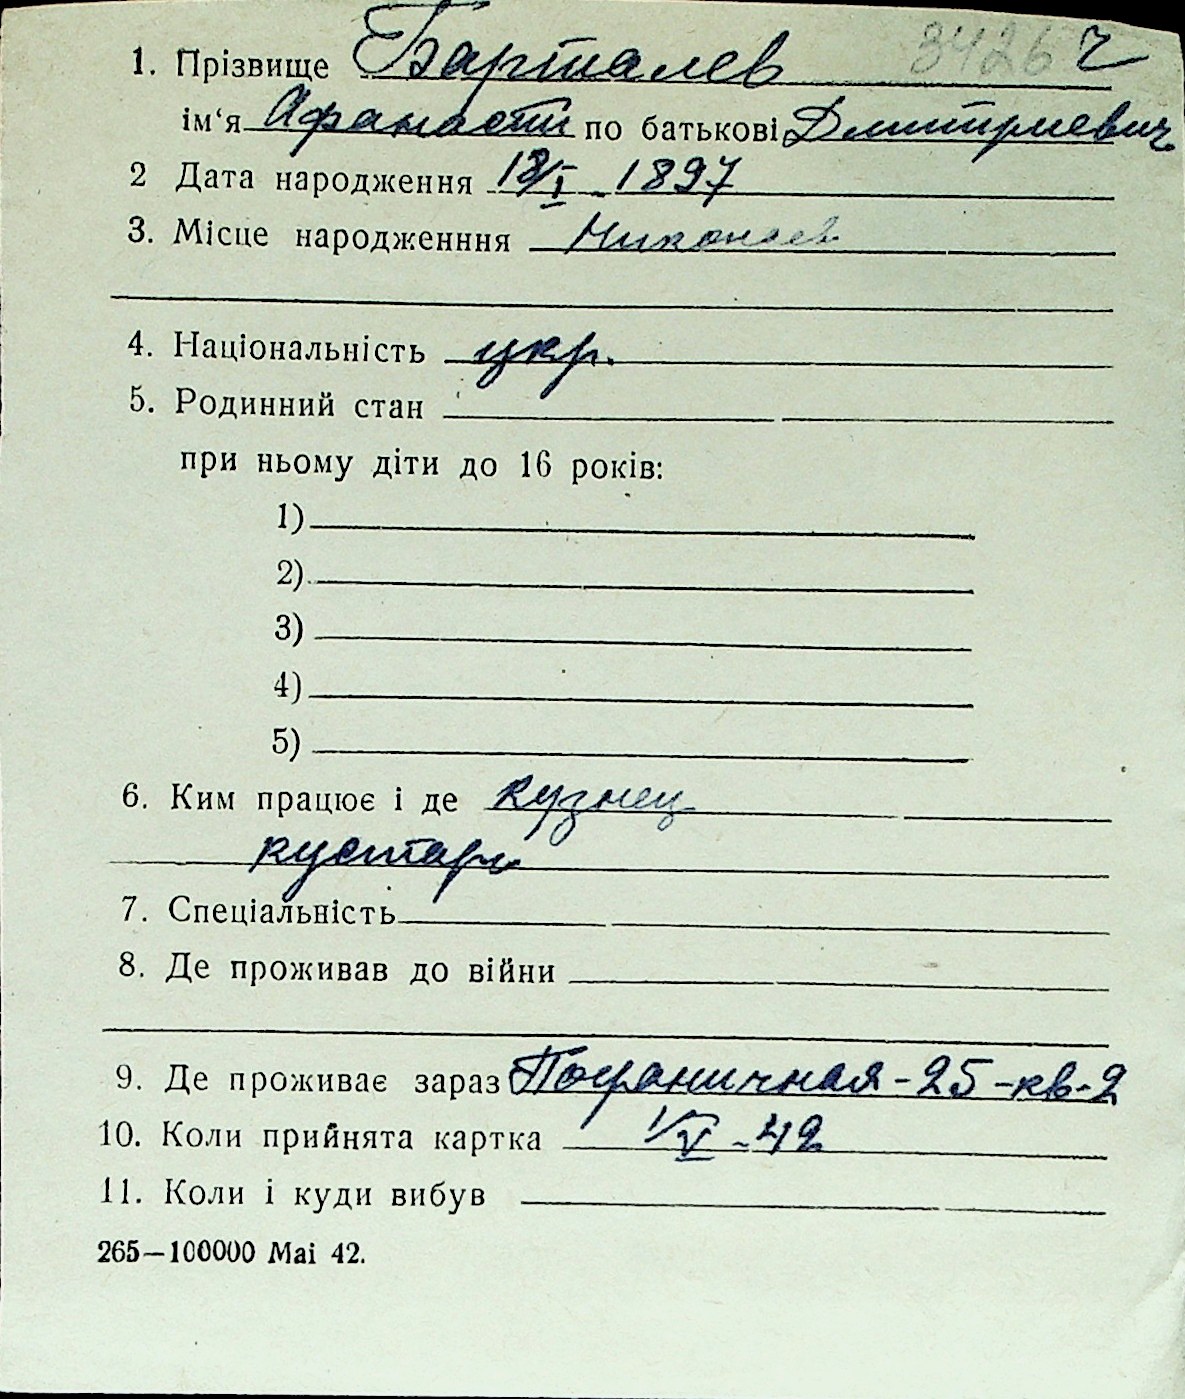 3426 ч
1. Прізвище Барталев
ім‘я Афанасий по батькові Дмитриевич
2 Дата народження 18/I - 1897
3. Місце народженння Николаев
4. Національність укр.
5. Родинний стан
при ньому діти до 16 років:
1)
2)
3)
4)
5)
6. Ким працює і де кузнец
кустарь
7. Спеціальність
8. Де проживав до війни
9. Де проживає зараз Пограничная-25-кв-2
10. Коли прийнята картка 1/V-42
11. Коли і куди вибув
265—100000 Mai 42.